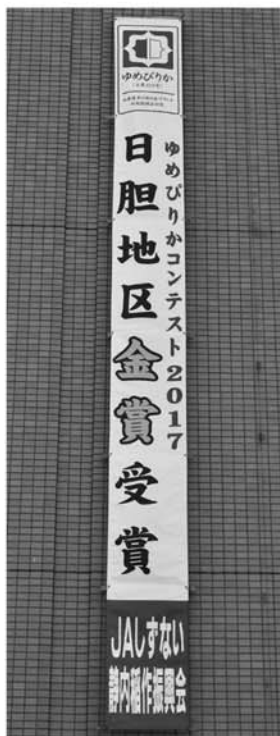 ゆめぴりか
ゆめぴりかコンテスト2017
日胆地区金賞受賞
JAしずない
静内稲作振興会